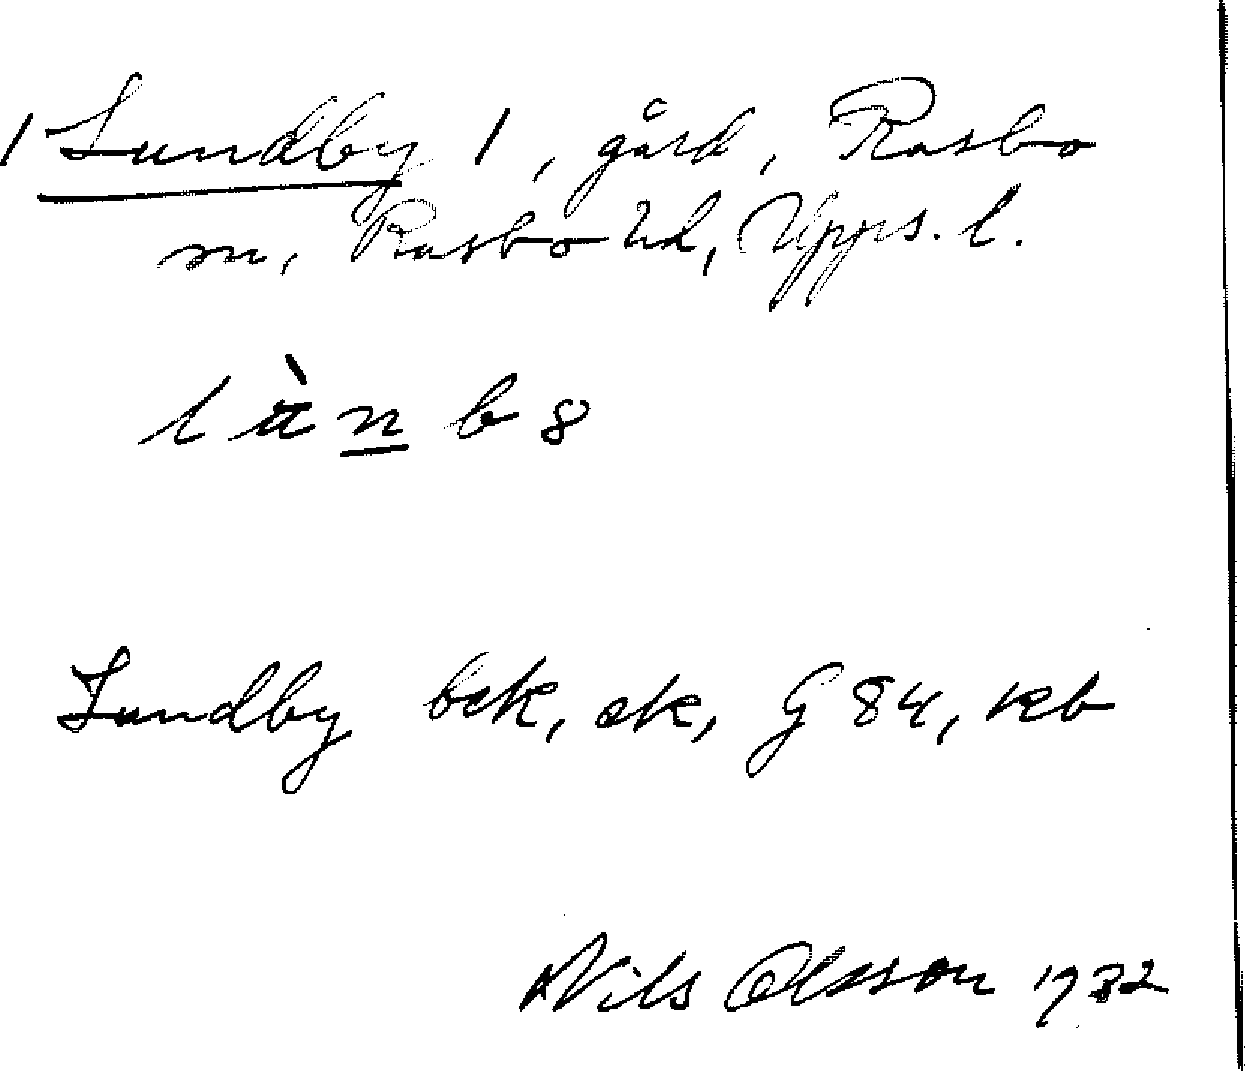 / Lundby /, gård, Rasbo
sn, Rasbo hd, Upps. l.
lànb8
Lundby bek, ek, G 84, kb
Nils Olsson 1932